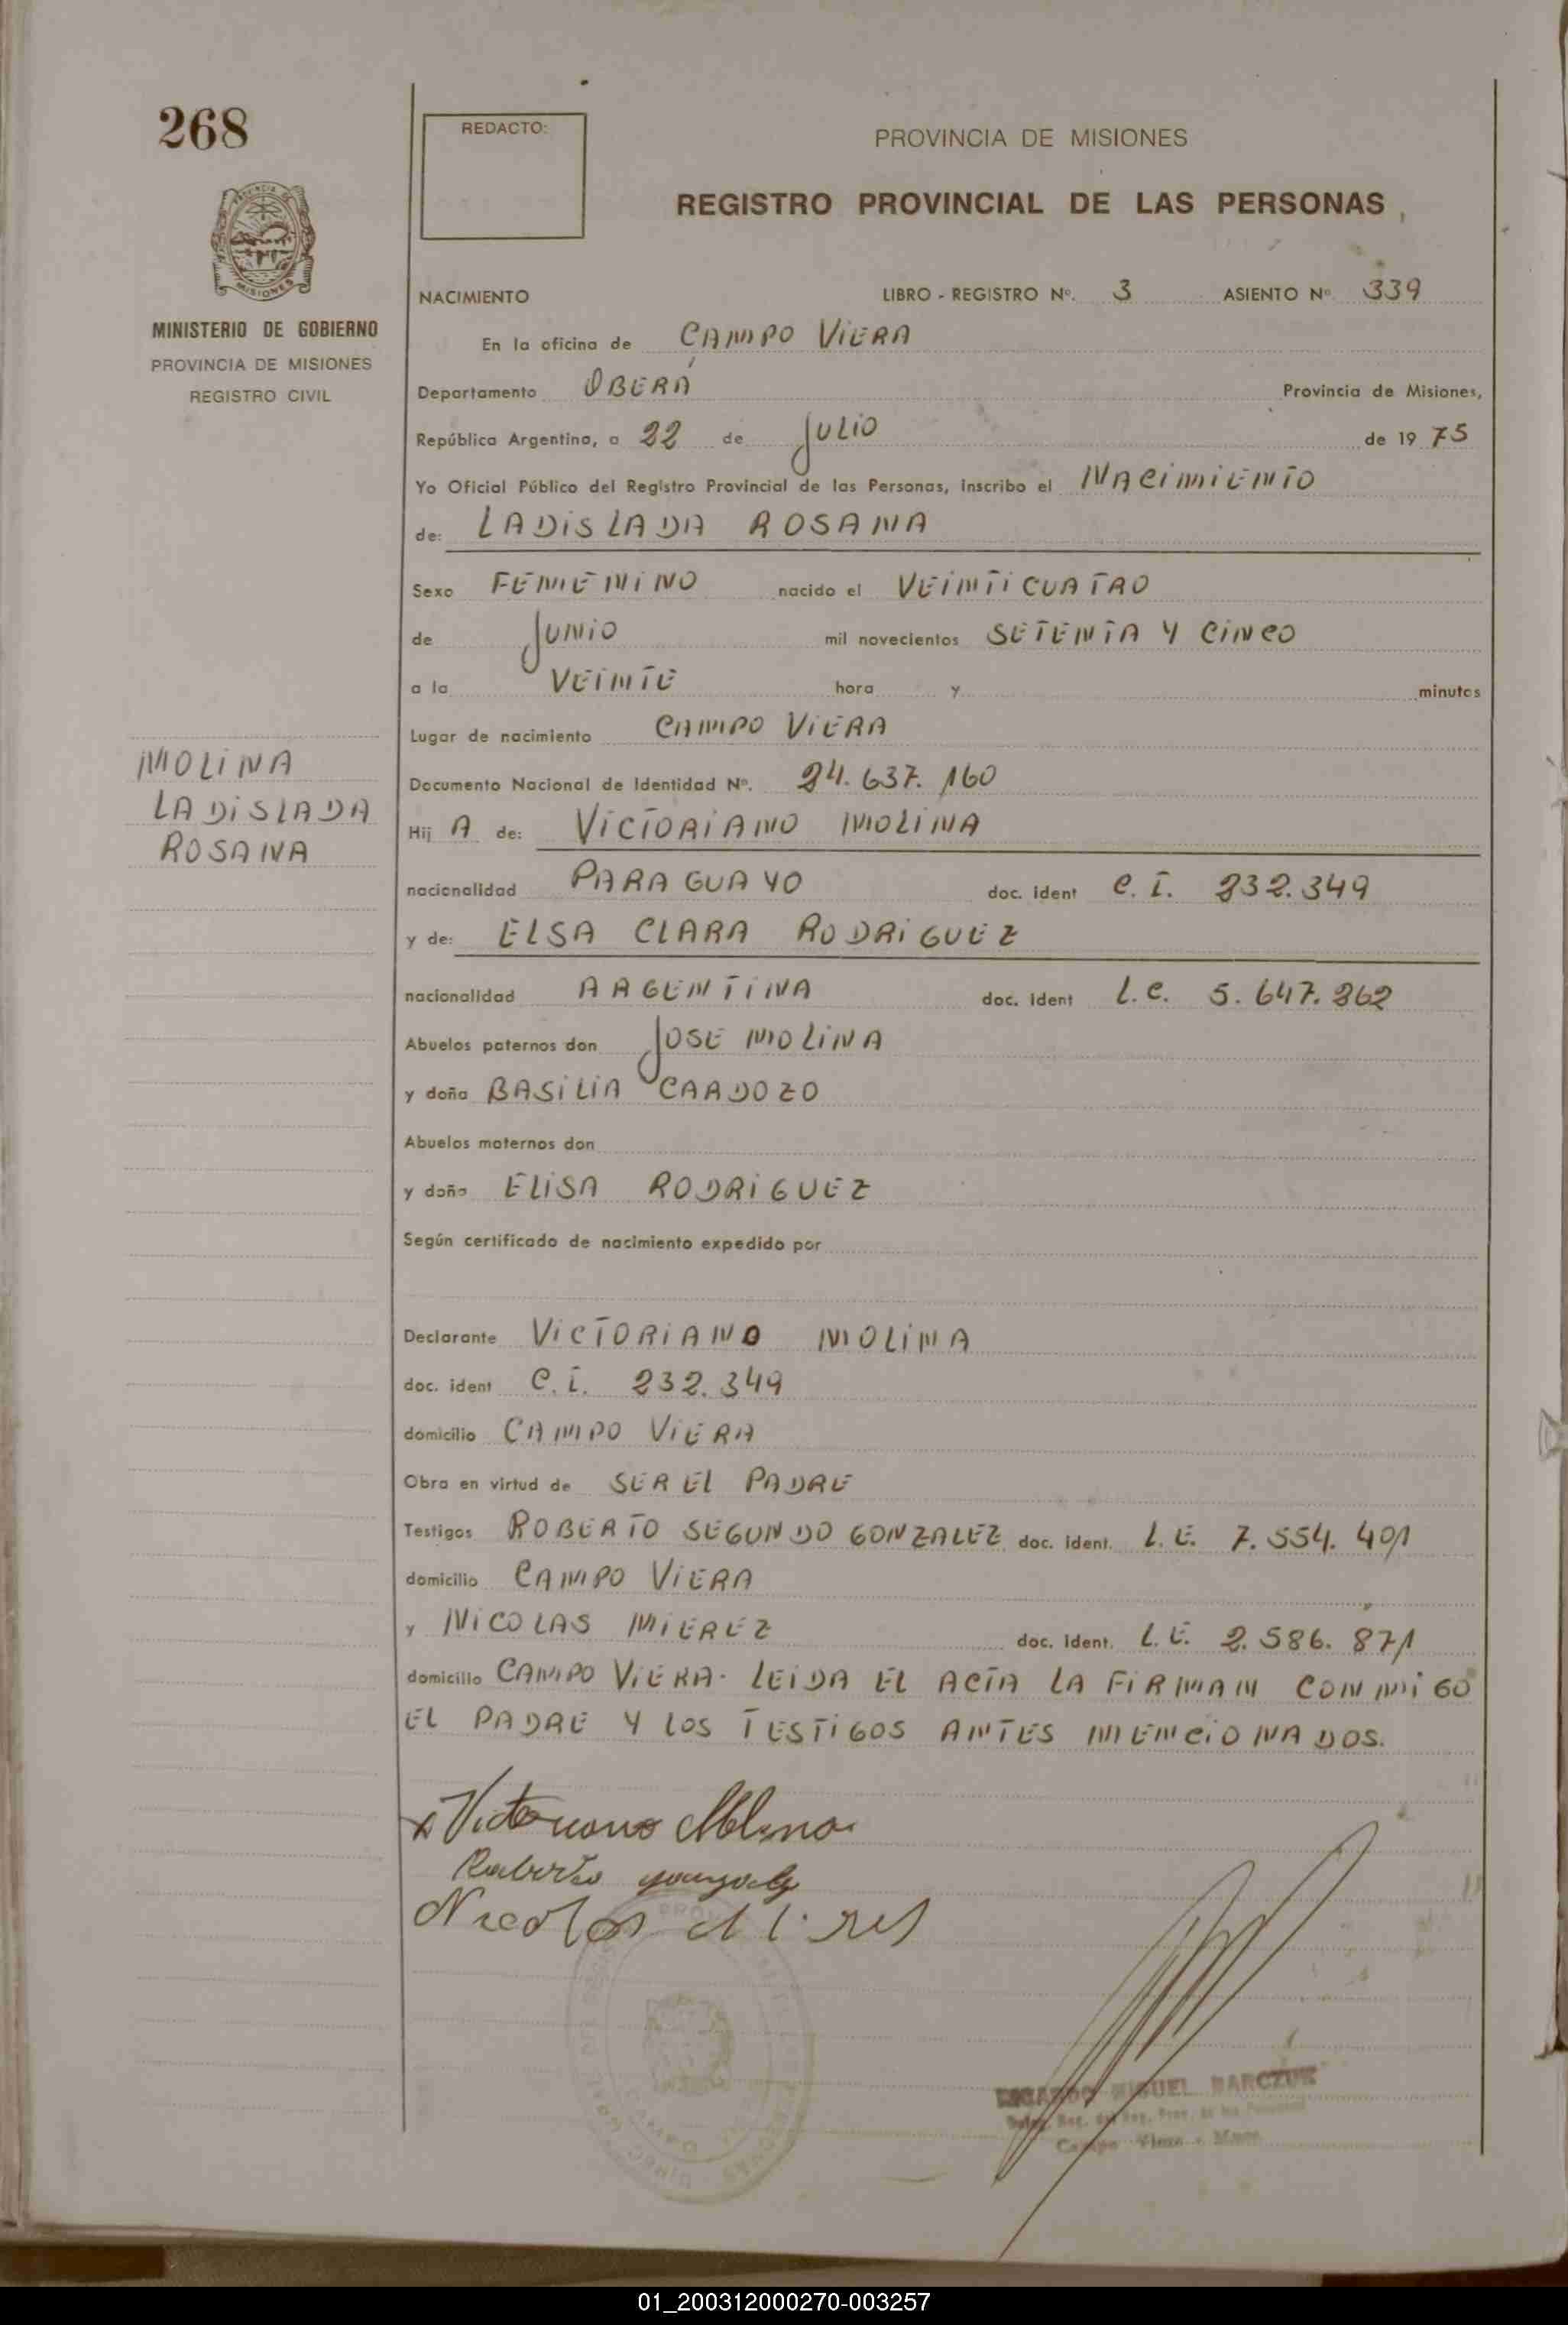 268
REDACTO:
PROVINCIA DE MISIONES
REGISTRO PROVINCIAL DE LAS PERSONAS
MINISTERIO DE GOBIERNO
PROVINCIA DE MISIONES
REGISTRO CIVIL
NACIMIENTO LIBRO - REGISTRO Nº. 3 ASIENTO Nº 339
En la oficina de CAMPO VIERA
Departamento OBERÁ Provincia de Misiones,
República Argentina, a 22 de JULIO de 1975
Yo Oficial Público del Registro Provincial de las Personas, inscribo el NACIMIENTO
de: LADISLADA ROSANA
Sexo FEMENINO nacido el VEINTICUATRO
de JUNIO mil novecientos SETENTA Y CINCO
a la VEINTE hora y minutos
Lugar de nacimiento CAMPO VIERA
MOLINA
LADISLADA
ROSANA
Documento Nacional de Identidad Nº. 24.637.160
Hij A de: VICTORIANO MOLINA
nacionalidad PARAGUAYO doc. ident C.I. 232.349
y de: ELSA CLARA RODRIGUEZ
nacionalidad ARGENTINA doc. ident L.C. 5.647.262
Abuelos paternos don JOSE MOLINA
y doña BASILIA CARDOZO
Abuelos maternos don
y doña ELISA RODRIGUEZ
Según certificado de nacimiento expedido por
Declarante VICTORIANO MOLINA
doc. ident C.I. 232.349
domicilio CAMPO VIERA
Obra en virtud de SER EL PADRE
Testigos ROBERTO SEGUNDO GONZALEZ doc. ident. L.E. 7.554.401
domicilio CAMPO VIERA
y NICOLAS MIEREZ doc. ident. L.E. 2.586.871
domicilio CAMPO VIERA. LEIDA EL ACTA LA FIRMAN CONMIGO
EL PADRE Y LOS TESTIGOS ANTES MENCIONADOS.
Victoriano Molina
Roberto
Nicolas
MIGUEL BARCZUK
Campo Viera
01_200312000270-003257